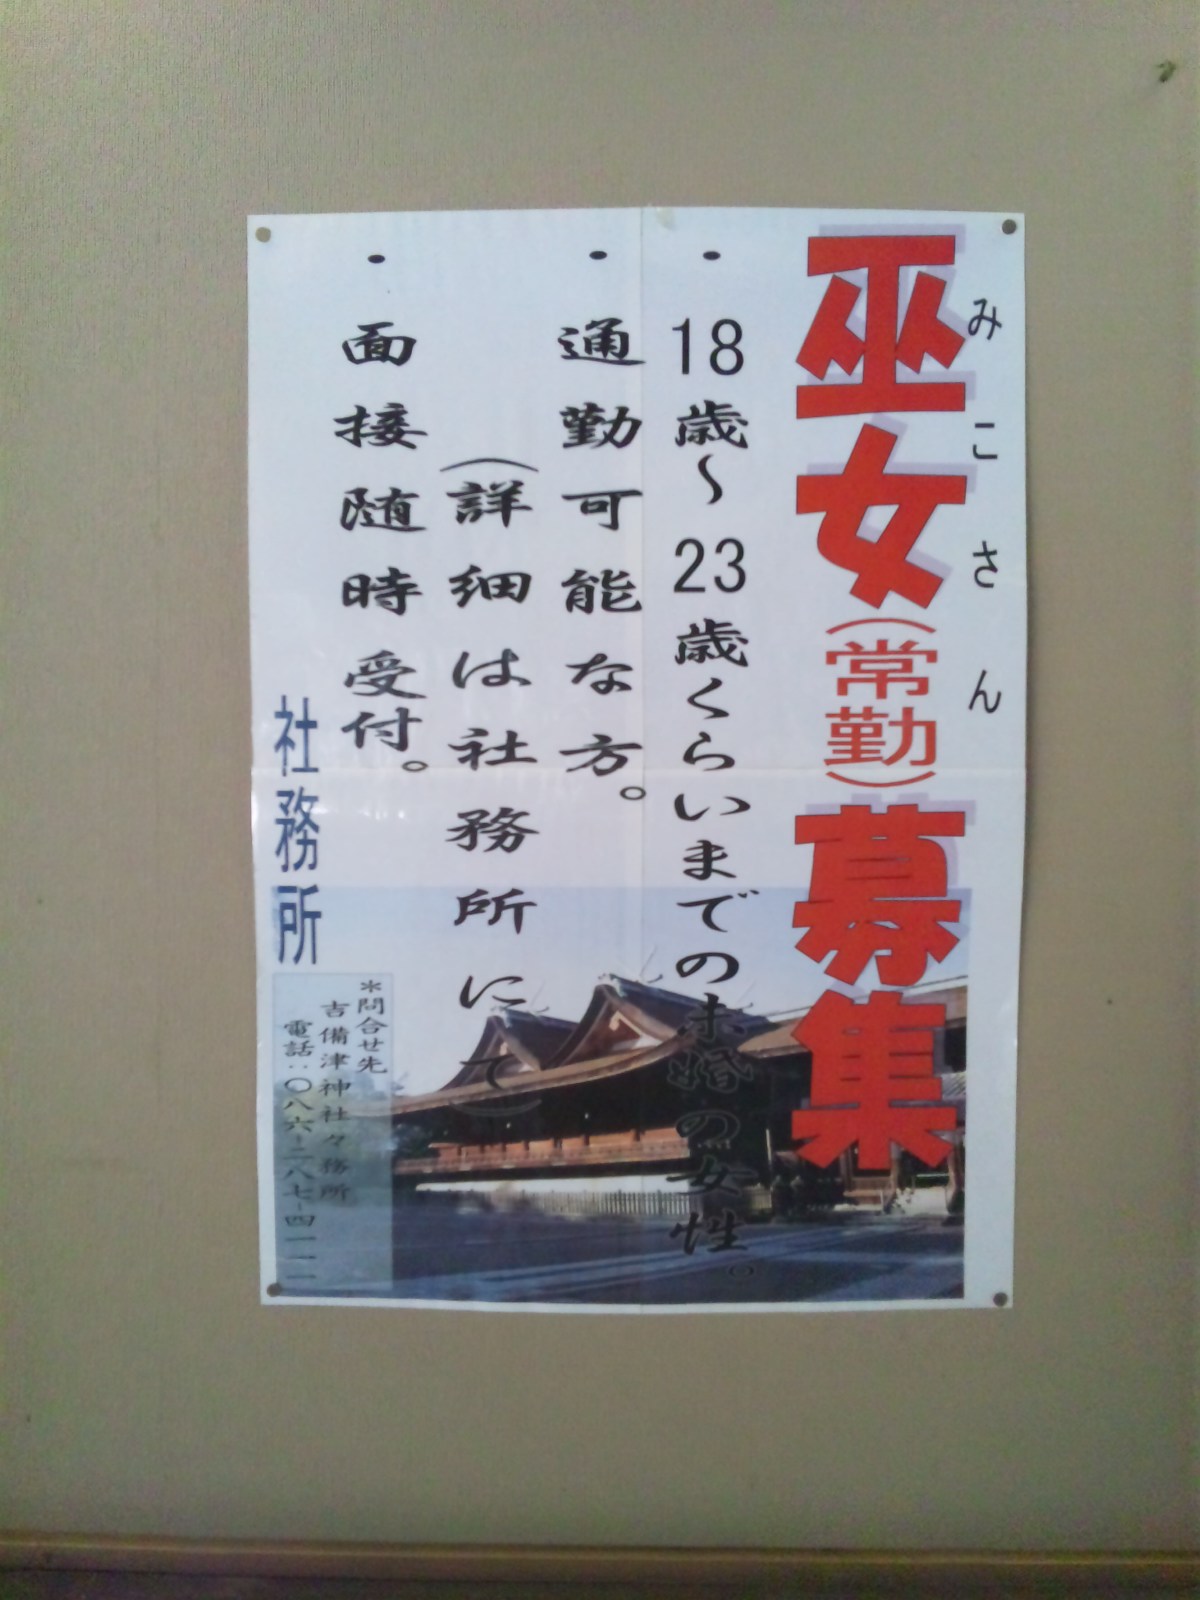 みこさん
巫女(常勤)募集
・18歳～23歳くらいまでの未婚の女性。
・通勤可能な方。
(詳細は社務所にて)
・面接随時受付。
社務所
＊問合せ先
吉備津神社々務所
電話:〇八六-二八七-四一一一